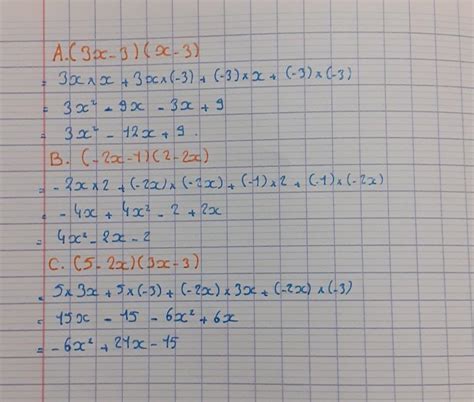 A. (3x-3)(x-3)
= 3x×x + 3x×(-3) + (-3)×x + (-3)×(-3)
= 3x² - 9x - 3x + 9
= 3x² - 12x + 9.
B. (-2x-1)(2-2x)
= -2x×2 + (-2x)×(-2x) + (-1)×2 + (-1)×(-2x)
= -4x + 4x² - 2 + 2x
= 4x² - 2x - 2
C. (5-2x)(3x-3)
= 5×3x + 5×(-3) + (-2x)×3x + (-2x)×(-3)
= 15x - 15 - 6x² + 6x
= -6x² + 21x - 15